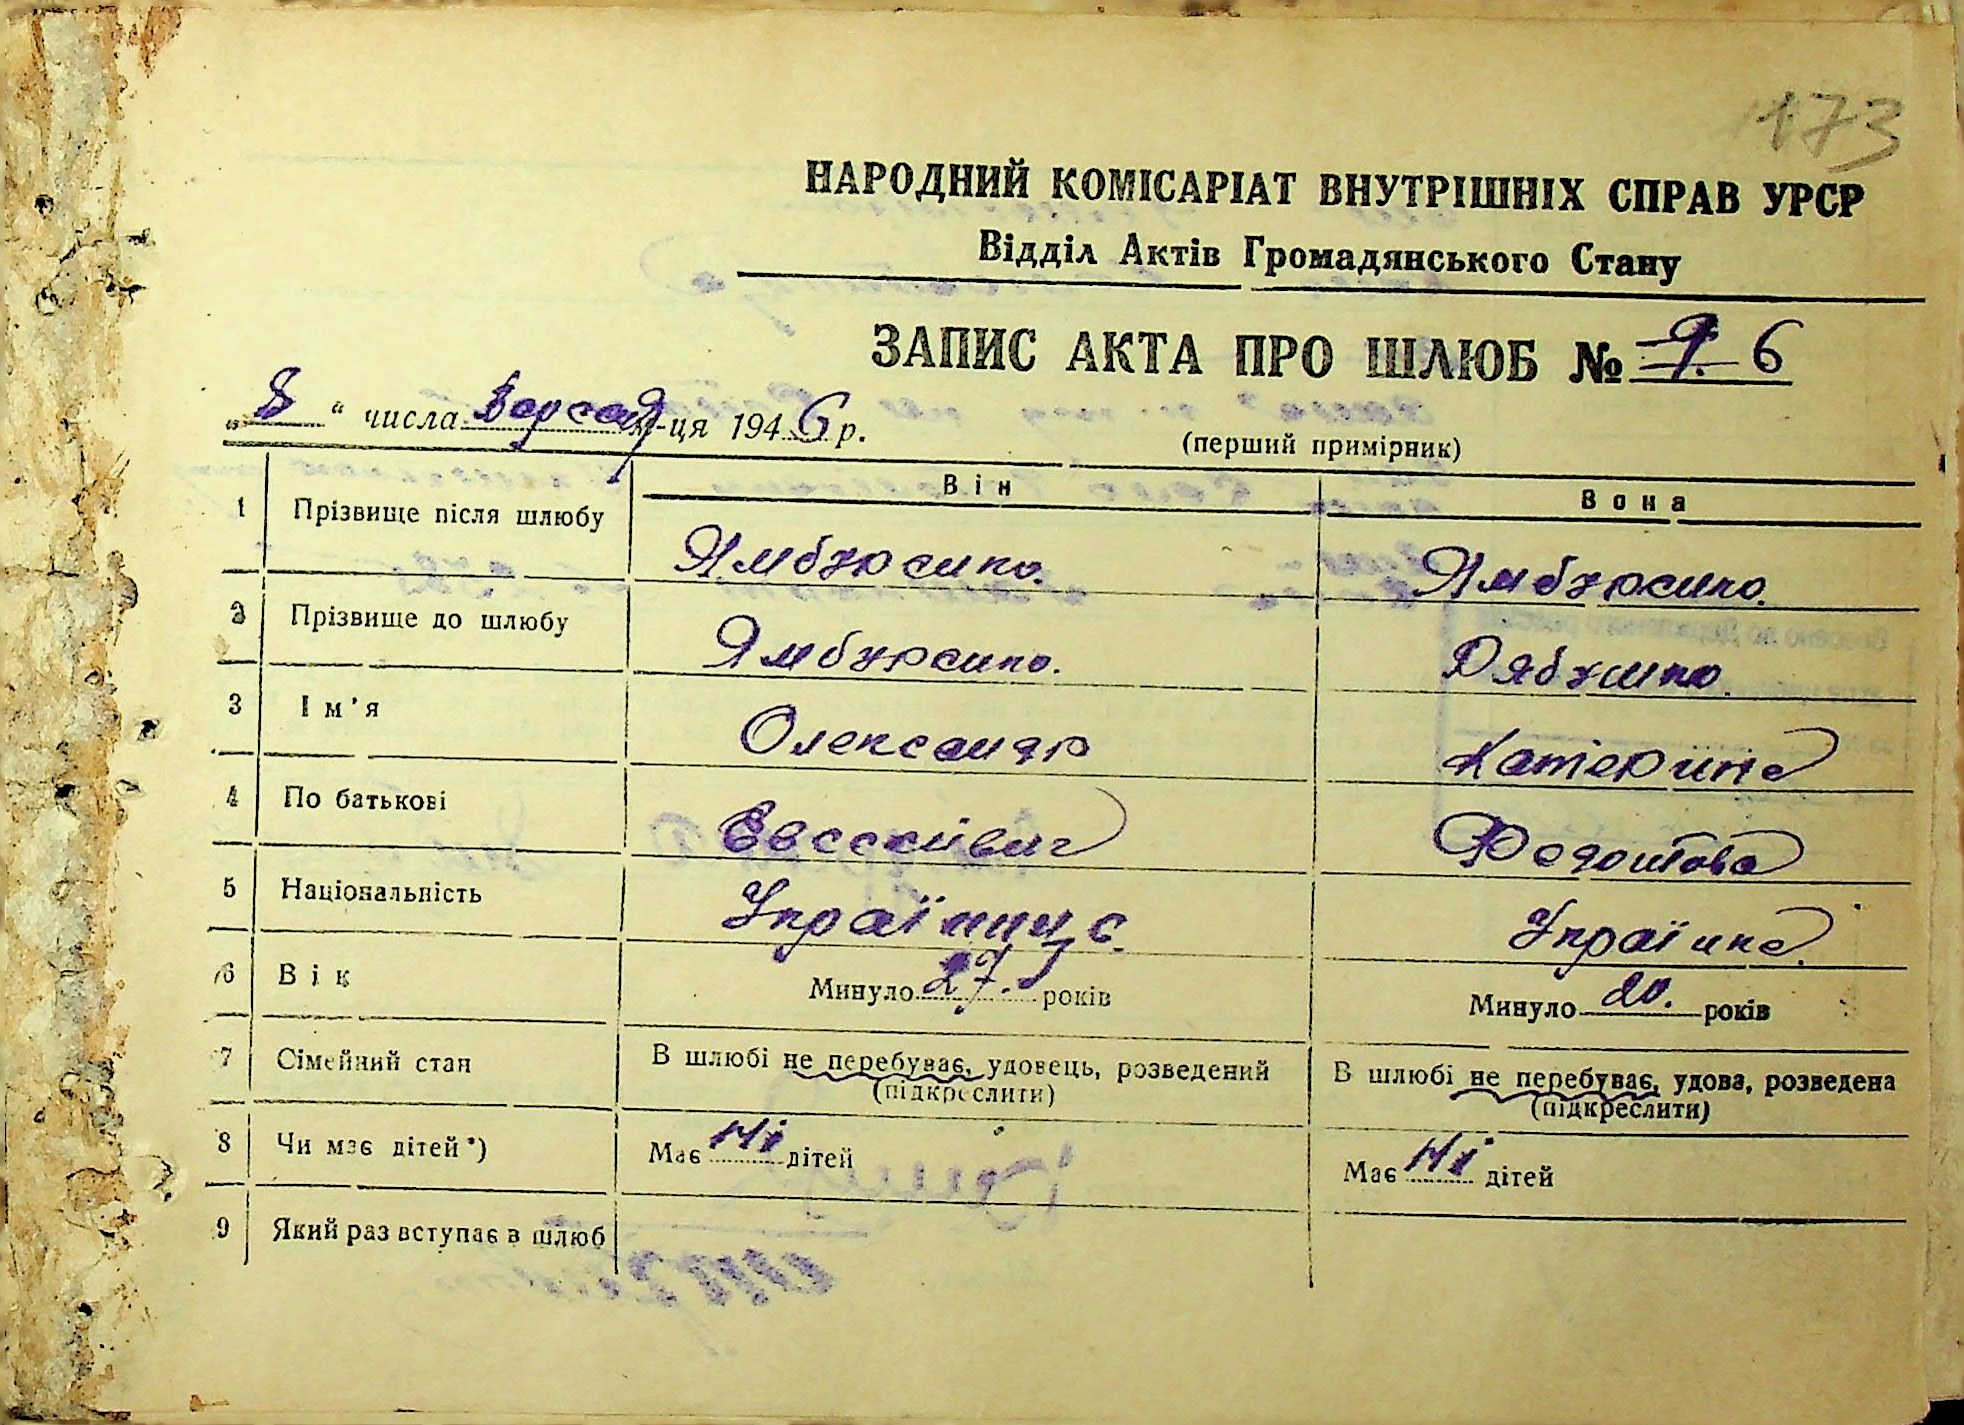 173
НАРОДНИЙ КОМІСАРІАТ ВНУТРІШНІХ СПРАВ УРСР
Відділ Актів Громадянського Стану
ЗАПИС АКТА ПРО ШЛЮБ № 6
„8“ числа м-ця 1946 р.
(перший примірник)
Він Вона
1 Прізвище після шлюбу
2 Прізвище до шлюбу
3 Ім’я Олександр Катерина
4 По батькові Федотова
5 Національність Українец Українка
6 Вік Минуло 27. років Минуло 20. років
7 Сімейний стан В шлюбі не перебуває, удовець, розведений В шлюбі не перебуває, удова, розведена
(підкреслити) (підкреслити)
8 Чи має дітей*) Має Ні дітей Має Ні дітей
9 Який раз вступає в шлюб